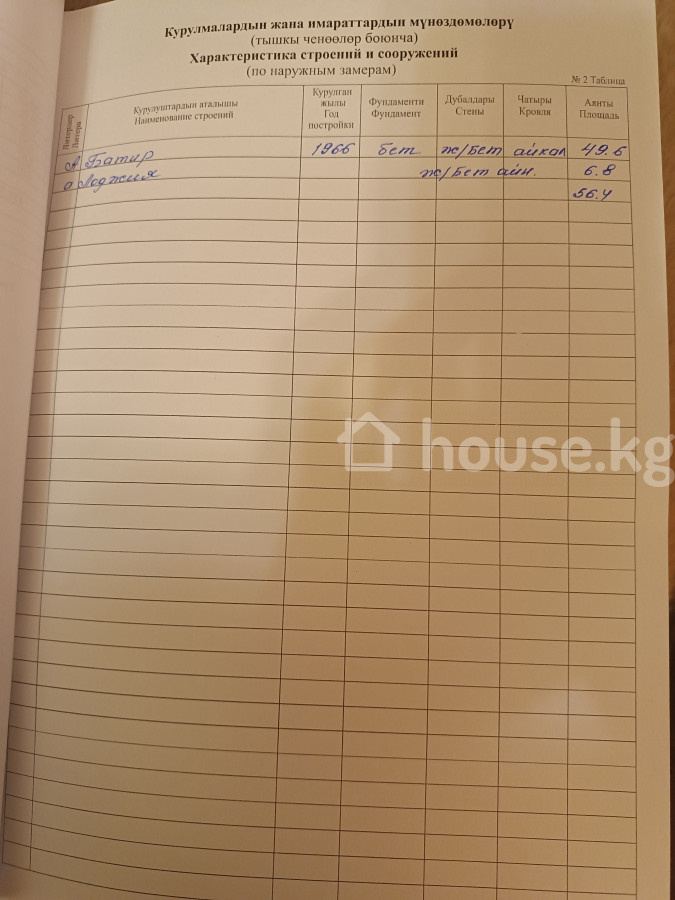 Курулмалардын жана имараттардын мүнөздөмөлөрү
(тышкы ченөөлөр боюнча)
Характеристика строений и сооружений
(по наружным замерам)
№ 2 Таблица
Литерлер
Литера
Курулуштардын аталышы
Наименование строений
Курулган
жылы
Год
постройки
Фундаменти
Фундамент
Дубалдары
Стены
Чатыры
Кровля
Аянты
Площадь
А Батир 1966 бет ж/бет айкал 49.6
а Лоджия ж/бет айн. 6.8
56.4
house.kg